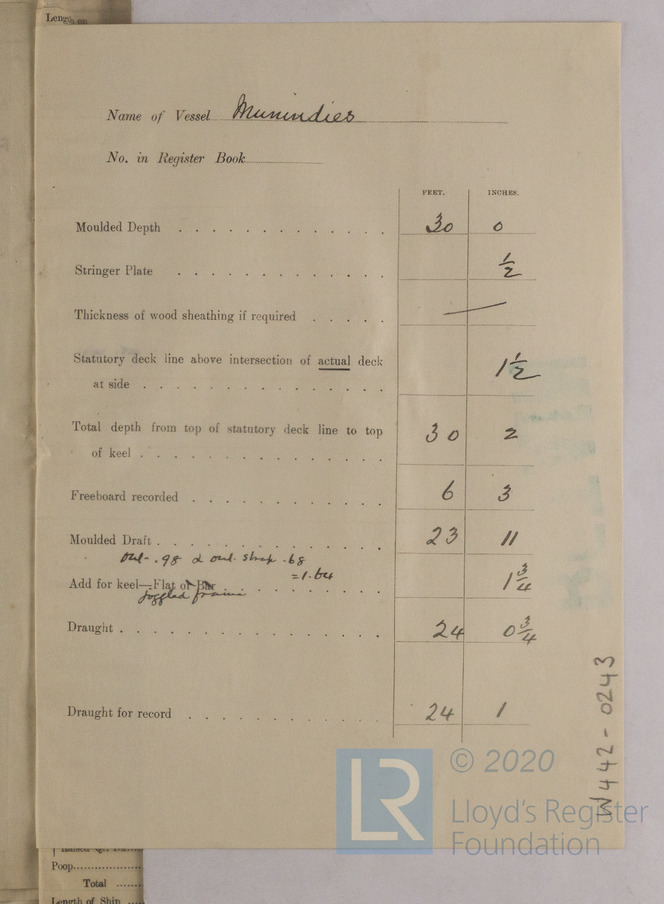 Length on
Name of Vessel Munindies
No. in Register Book
FEET. INCHES.
Moulded Depth . . . . . . . . . . . . . 30 0
Stringer Plate . . . . . . . . . . . . . ½
Thickness of wood sheathing if required . . . . . —
Statutory deck line above intersection of actual deck
at side . . . . . . . . . . . . . . . 1½
Total depth from top of statutory deck line to top
of keel . . . . . . . . . . . . . . . 30 2
Freeboard recorded . . . . . . . . . . . . 6 3
Moulded Draft . . . . . . . . . . . . . . 23 11
.98 & .68
Add for keel—Flat or Bar = 1.64 . . . . . . . 1¾
joggled frame
Draught . . . . . . . . . . . . . . . . 24 0¾
Draught for record . . . . . . . . . . . . 24 1
W442-0243
LR © 2020
Lloyd's Register
Foundation
Poop
Total
Length of Ship